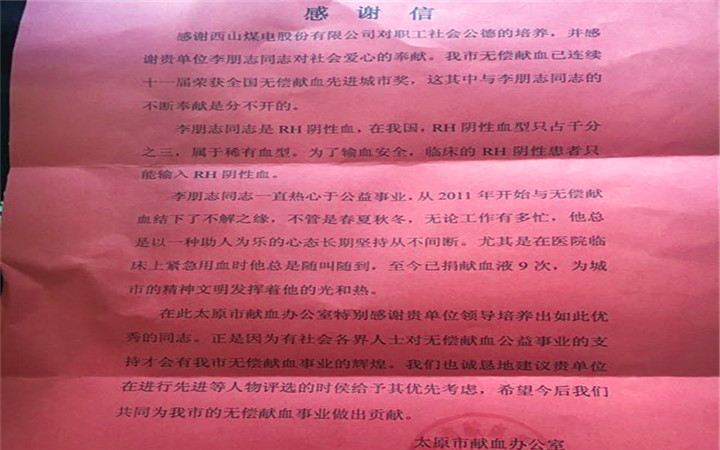 感 谢 信
感谢西山煤电股份有限公司对职工社会公德的培养，并感
谢贵单位李朋志同志对社会爱心的奉献。我市无偿献血已连续
十一届荣获全国无偿献血先进城市奖，这其中与李朋志同志的
不断奉献是分不开的。
李朋志同志是RH阴性血，在我国，RH阴性血型只占千分
之三，属于稀有血型。为了输血安全，临床的RH阴性患者只
能输入RH阴性血。
李朋志同志一直热心于公益事业，从2011年开始与无偿献
血结下了不解之缘，不管是春夏秋冬，无论工作有多忙，他总
是以一种助人为乐的心态长期坚持从不间断。尤其是在医院临
床上紧急用血时他总是随叫随到，至今已捐献血液9次，为城
市的精神文明发挥着他的光和热。
在此太原市献血办公室特别感谢贵单位领导培养出如此优
秀的同志。正是因为有社会各界人士对无偿献血公益事业的支
持才会有我市无偿献血事业的辉煌。我们也诚恳地建议贵单位
在进行先进等人物评选的时侯给予其优先考虑，希望今后我们
共同为我市的无偿献血事业做出贡献。
太原市献血办公室